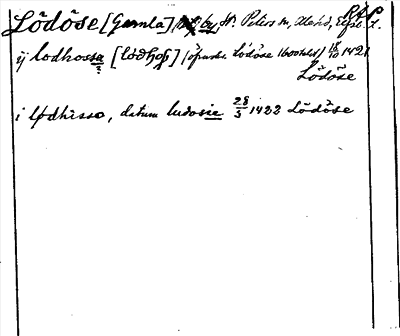 RAP
Lödöse [Gamla], by, St. Peters sn, Ale hd, Elfsb. l.
ij lodhossa [lödhos] /öpardz. Lödöse 16/10 1421
Lödöse
i lødhisso, datum ludosie 28/5 1422 Lödöse